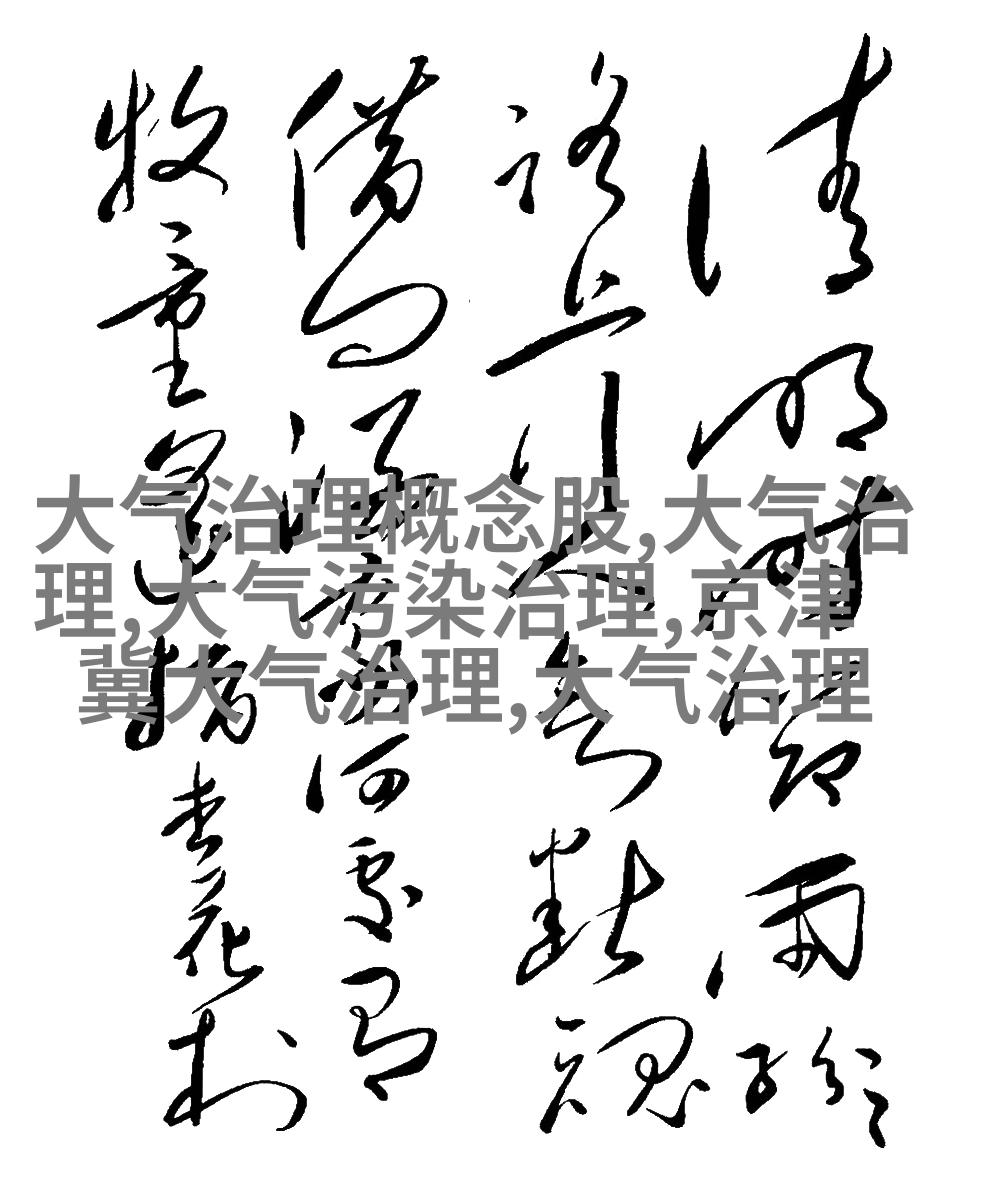 清明時節雨紛紛
路上行人欲斷魂
借问酒家何處有
牧童遥指杏花村
大气治理概念股,大气治
理,大气污染治理,京津
冀大气治理,大气治理